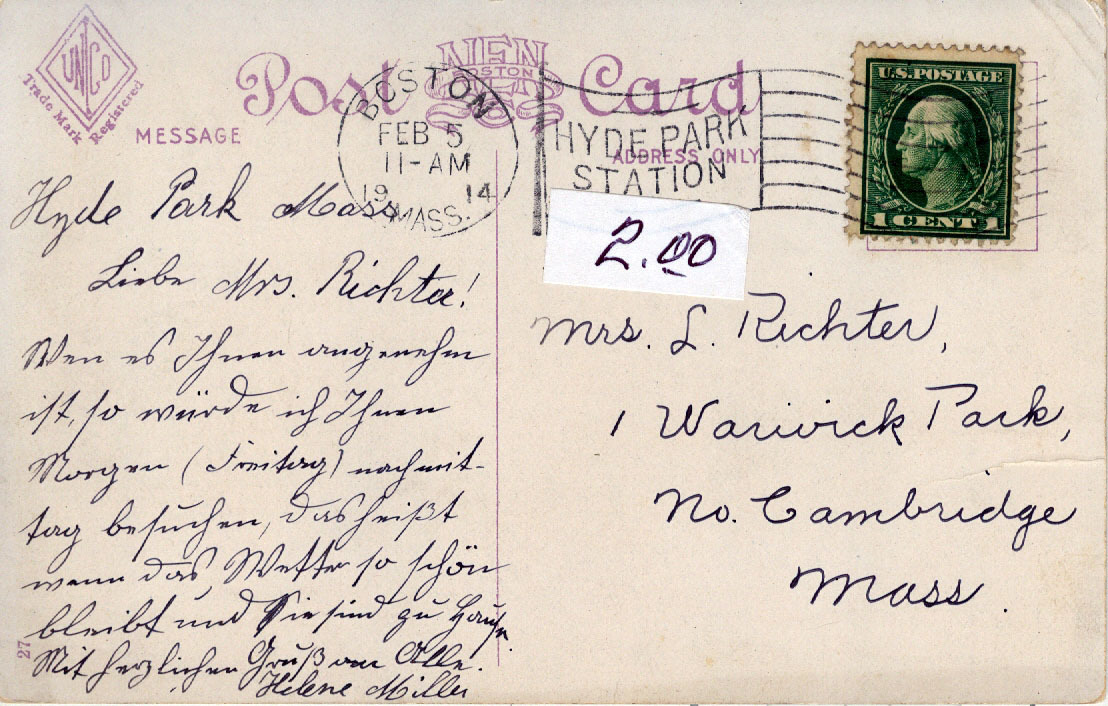 UNICO
Trade Mark Registered
Post Card
NEN
BOSTON
MESSAGE
ADDRESS ONLY
BOSTON
FEB 5
11-AM
19 14
MASS.
HYDE PARK
STATION
U.S. POSTAGE
1 CENT 1
2.00
Hyde Park Mass
Liebe Mrs. Richter!
Wen es Ihnen angenehm
ist, so würde ich Ihnen
Morgen (Freitag) nachmit-
tag besuchen, das heißt
wenn das Wetter so schön
bleibt und Sie sind zu Hause.
Mit herzlichen Gruß an Alle.
Helene Miller
27
Mrs. L. Richter,
1 Warwick Park,
No. Cambridge
Mass.